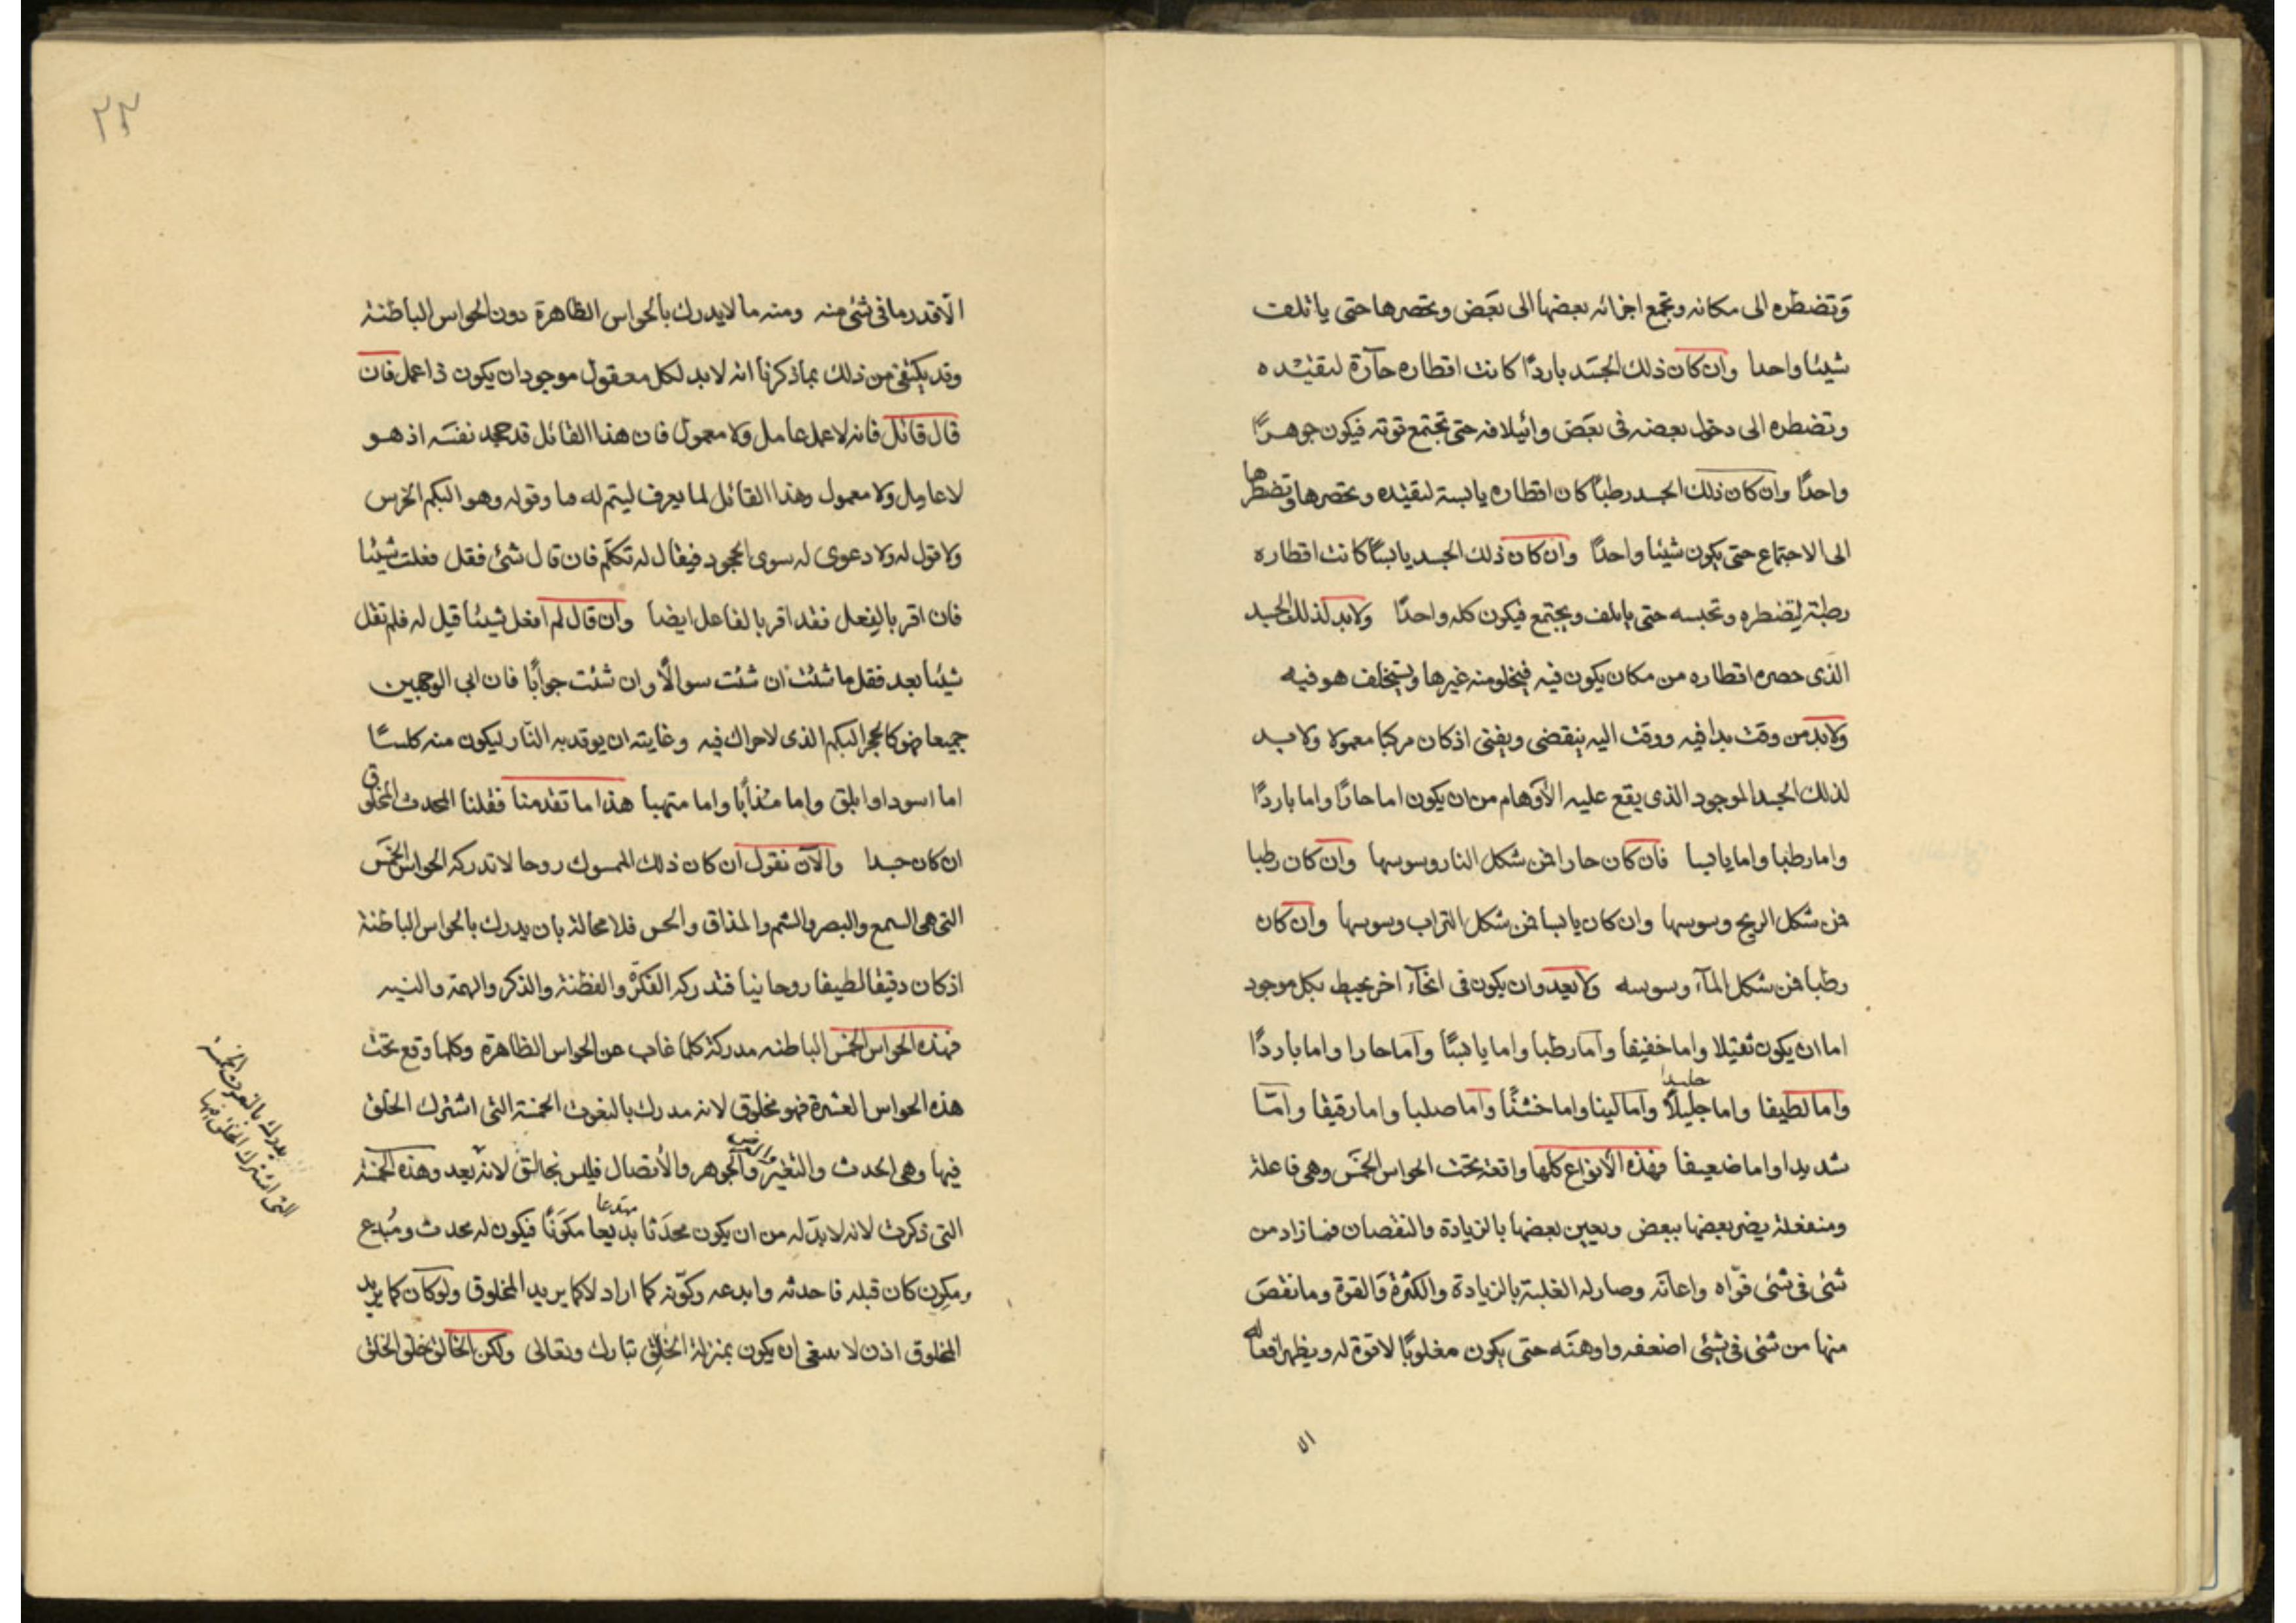 وتضطره الى مكانه وتجمع اجزائه بعضها الى بعض وتحصرها حتى ياتلف
شيئا واحدا وان كان ذلك الجسد باردًا كانت اقطاره حآرة لتقيده
وتضطره الى دخول بعضه فى بعض وائيلافه حتى تجتمع قوته فيكون جوهرًا
واحدًا وان كان ذلك الجسد رطبًا كان اقطاره يابسة لتقيده وتحصرها وتضطرها
الى الاجتماع حتى يكون شيئا واحدًا وان كان ذلك الجسد يابسًا كانت اقطاره
رطبة ليضطره وتحبسه حتى ياتلف ويجتمع فيكون كله واحدًا ولابد لذلك الجسد
الذى حصره اقطاره من مكان يكون فيه فيخلو منه غيرها ويستخلف هو فيه
ولابد من وقت بدا فيه ووقت اليه ينقضى ويفنى اذ كان مركبا معمولا ولابد
لذلك الجسد الموجود الذى يقع عليه الأوهام من ان يكون اما حارًا واما باردًا
واما رطبا واما يابسا فان كان حارا فمن شكل النار وسوسها وان كان رطبا
فمن شكل الريح وسوسها وان كان يابسا فمن شكل التراب وسوسها وان كان
رطبا فمن شكل المآء وسوسه ولابعد وان يكون فى انحآء اخر يحيط بكل موجود
اما ان يكون ثقيلا واما خفيفا وأما رطبا واما يابسًا وأما حارا واما باردًا
جليدا
واما لطيفا واما جليلًا وأما لينا واما خشنًا وأما صلبا واما رقيقا وامّا
شديدا واما ضعيفا فهذه الأنواع كلها واقعة تحت الحواس الخمس وهى فاعلة
ومنفعلة يضر بعضها ببعض ويعين بعضها بالزيادة والنقصان فما زاد من
شئى فى شئى قوّاه واعانه وصار له الغلبة بالزيادة والكثرة والقوة وما نقص
منها من شئى فى شئى اضعفه واوهنه حتى يكون مغلوبًا لا قوة له ويظهر افعاله
الا
٢٣
الّا قدر ما فى شئ منه ومنه ما لا يدرك بالحواس الظاهرة دون الحواس الباطنة
وقد يكتفى من ذلك بما ذكرنا انه لابد لكل معقول موجود ان يكون ذا عمل فان
قال قائل فانه لا عمل عامل ولا معمول فان هذا القائل قد جحد نفسه اذ هو
لا عامل ولا معمول وهذا القائل لما يعرف ليتم له ما وقوله وهو البكم الخرس
ولا قول له ولا دعوى له سوى الجحود فيقال له تكلّم فان قال شئ فقل فعلت شيئا
فان اقر بالفعل فقد اقر بالفاعل ايضا وان قال لم افعل شيئا قيل له فلم تقل
شيئا بعد فقل ما شئت ان شئت سوالًا وان شئت جوابًا فان ابى الوجهين
جميعا فهو كالحجر البكم الذى لا حراك فيه وغايته ان يوقد به النار ليكون منه كلسًا
اما اسود او ابلق واما مذابًا واما متهبا هذا ما تقدمنا فقلنا المحدث المخلوق
ان كان جسدا والآن نقول ان كان ذلك الممسوك روحا لا تدركه الحواس الخمس
التى هى السمع والبصر والشم والمذاق والحس فلا محالة بان يدرك بالحواس الباطنة
اذ كان دقيقا لطيفا روحانيا فتدركه الفكرة والفطنة والذكر والهمة والنيه
فهذه الحواس الخمس الباطنه مدركة كلما غاب عن الحواس الظاهرة وكلما وقع تحت
هذه الحواس العشرة فهو مخلوق لانه مدرك بالنعوت الخمسة التى اشترك الخلق
والعرض
فيها وهى الحدث والتغير والجوهر والأتصال فليس بخالق لانه بعد وهذه الخمسة
مبتدعا
التى ذكرت لانه لابدّ له من ان يكون محدَثا بديعا مكوّنًا فيكون له محدث ومُبدع
ومكوِن كان قبله فاحدثه وابدعه وكوّنه كما اراد لا كما يريد المخلوق ولو كان كما يريد
المخلوق اذن لا ينبغى ان يكون بمنزلة الخالق تبارك وتعالى ولكن الخالق خلق الخلق
يدرك بالنعوت الخمسة
التى اشترك الخلق فيها